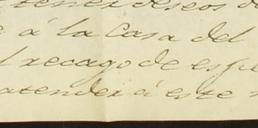 tener deseos d
á la Casa del
recago de espe
atender á este